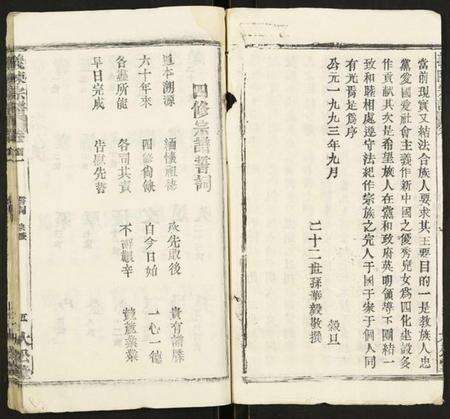 當前現實又結法合族人要求其主要目的一是教族人忠
黨愛國愛社會主義作新中國之優秀兒女為四化建設多
作貢献其次是希望族人在黨和政府英明領導下團結一
致和睦相處遵守法紀作宗族之完人于國于家于個人同
有光焉是為序
公元一九九三年九月 穀旦
二十二世孫華毅敬撰
四修宗譜誓詞
追本溯源 緬懷祖德 承先啟後 責有
六十年來 四修尚缺 自今日始 一心一德
各盡所能 各司其責 不辭艱辛
早日完成 告慰先哲
宗譜
誓詞
五